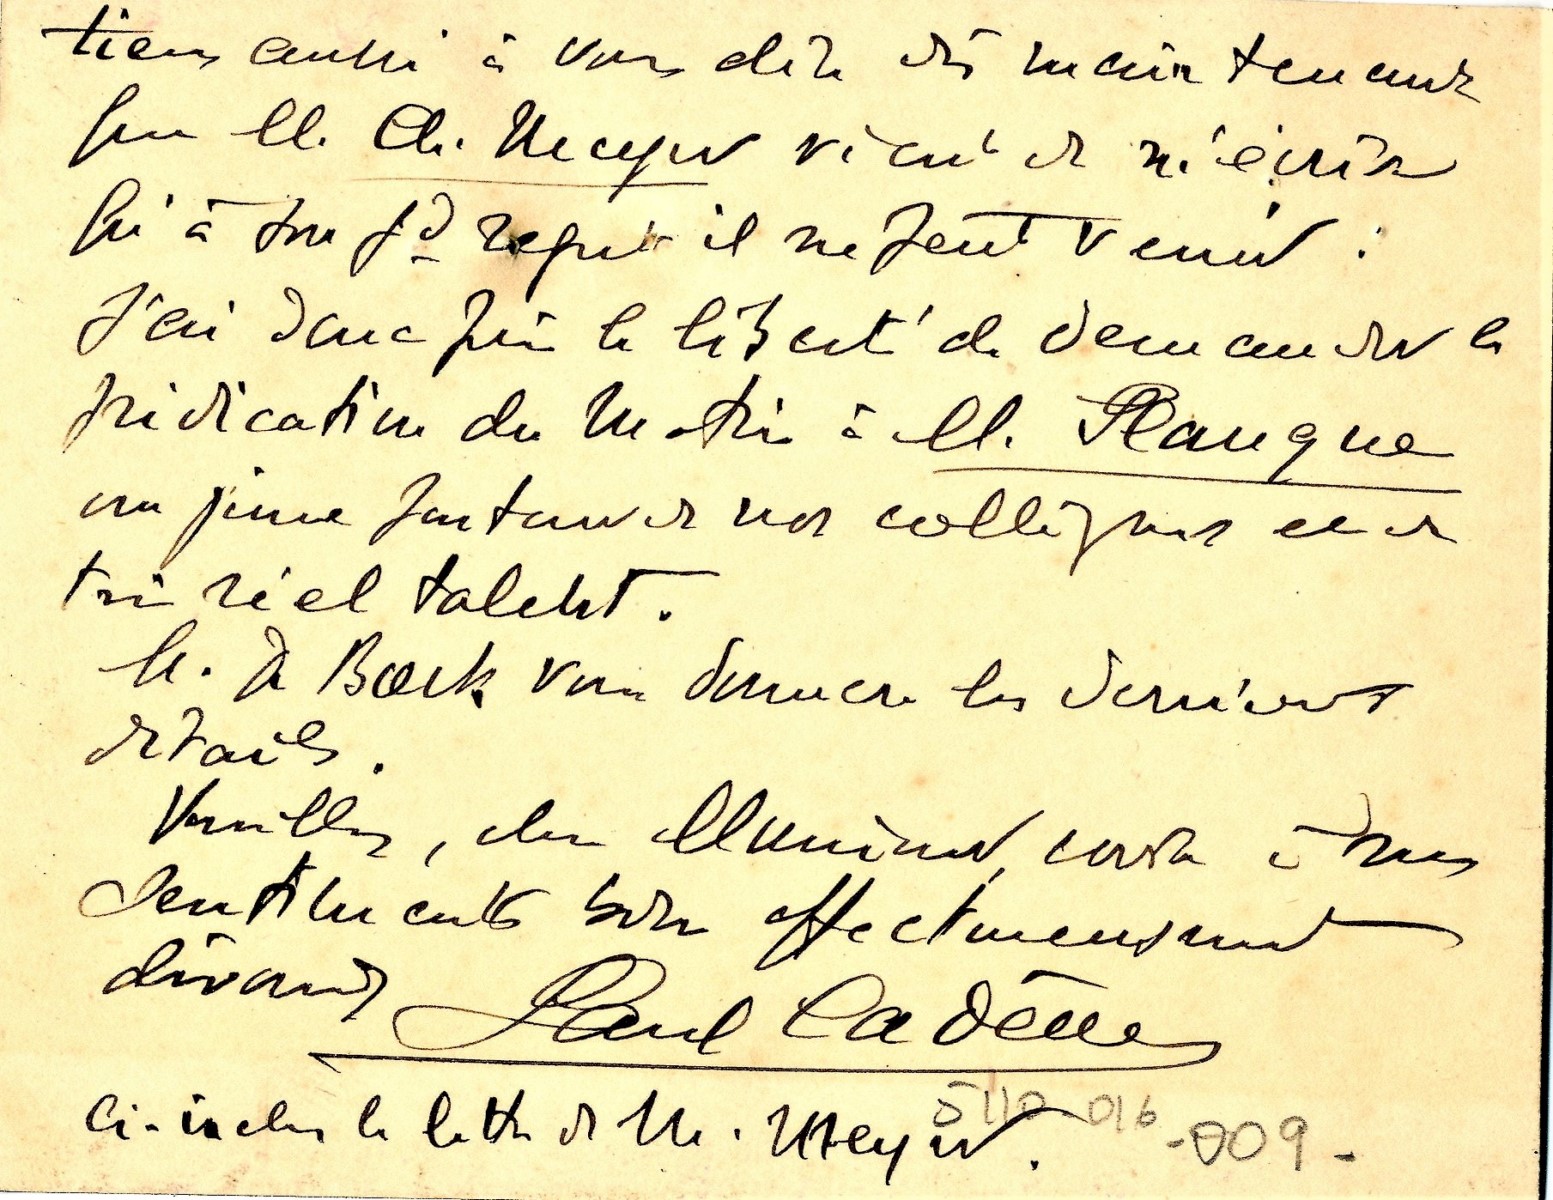 tiens aussi à vous dire dès maintenant
que M. Ch. Meyer vient de m'écrire
qu'à son gd regret il ne peut venir :
J'ai donc pris la liberté de demander la
prédication du matin à M. Planque
un jeune pasteur de nos collègues et de
très réel talent.
M. De Boeck vous donnera les derniers
détails.
Veuillez, cher Monsieur, croire à mes
sentiments bien affectueusement
dévoués
Paul Cadène
Ci-inclus la lettre de M. Meyer.
5110 016
-009-